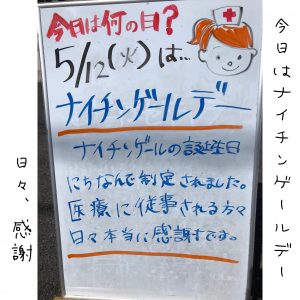 今日はナイチンゲールデー
今日は何の日?
5/12(火)は...
ナイチンゲールデー
ナイチンゲールの誕生日
にちなんで制定されました。
医療に従事される方々
日々本当に感謝です。
日々、感謝